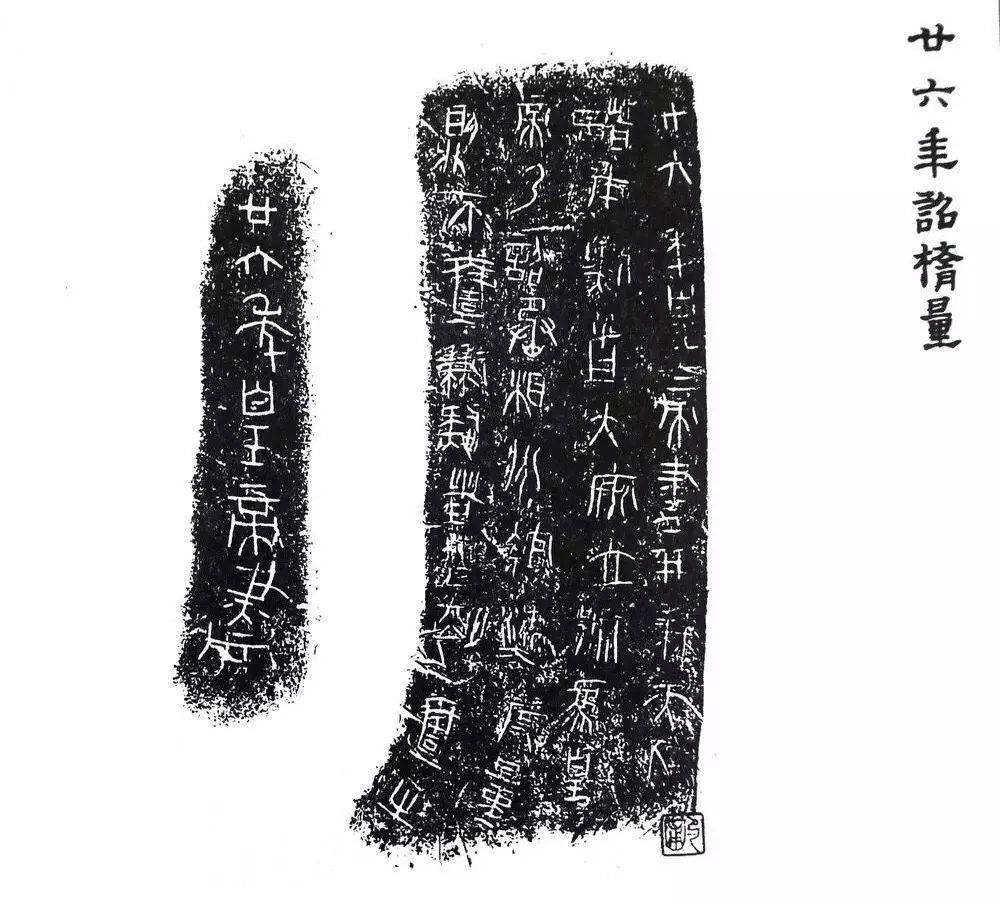 廿六年詔楕量
廿六年皇帝盡并兼天下
諸侯黔首大安立號為皇
帝乃詔丞相狀綰法度量
則不壹歉疑者皆明壹之
廿六年皇帝